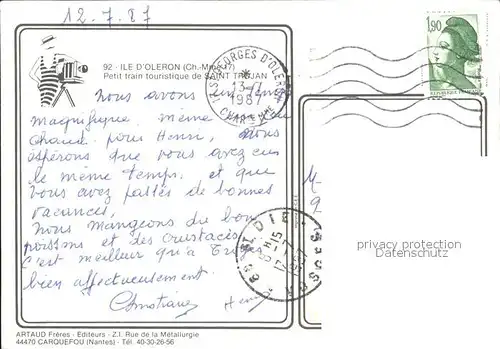 12.7.87
92 - ILE D'OLERON (Ch.-Mme 17)
Petit train touristique de SAINT TROJAN
ST GEORGES D'OLERON
13-7
1987
CHARENTE MME
1,90
REPUBLIQUE FRANCAISE
Nous avons un temps
magnifique, même
chaud pour Henri, nous
espérons que vous avez eu
le même temps. et que
vous avez passés de bonnes
vacances,
Nous mangeons du bon
poissons et des crustacés
c'est meilleur qu'à
bien affectueusement.
Christiane Henri
ST DIE
88
15 H
privacy protection
Datenschutz
ARTAUD Frères - Editeurs - Z.I. Rue de la Métallurgie
44470 CARQUEFOU (Nantes) - Tél. 40-30-26-56